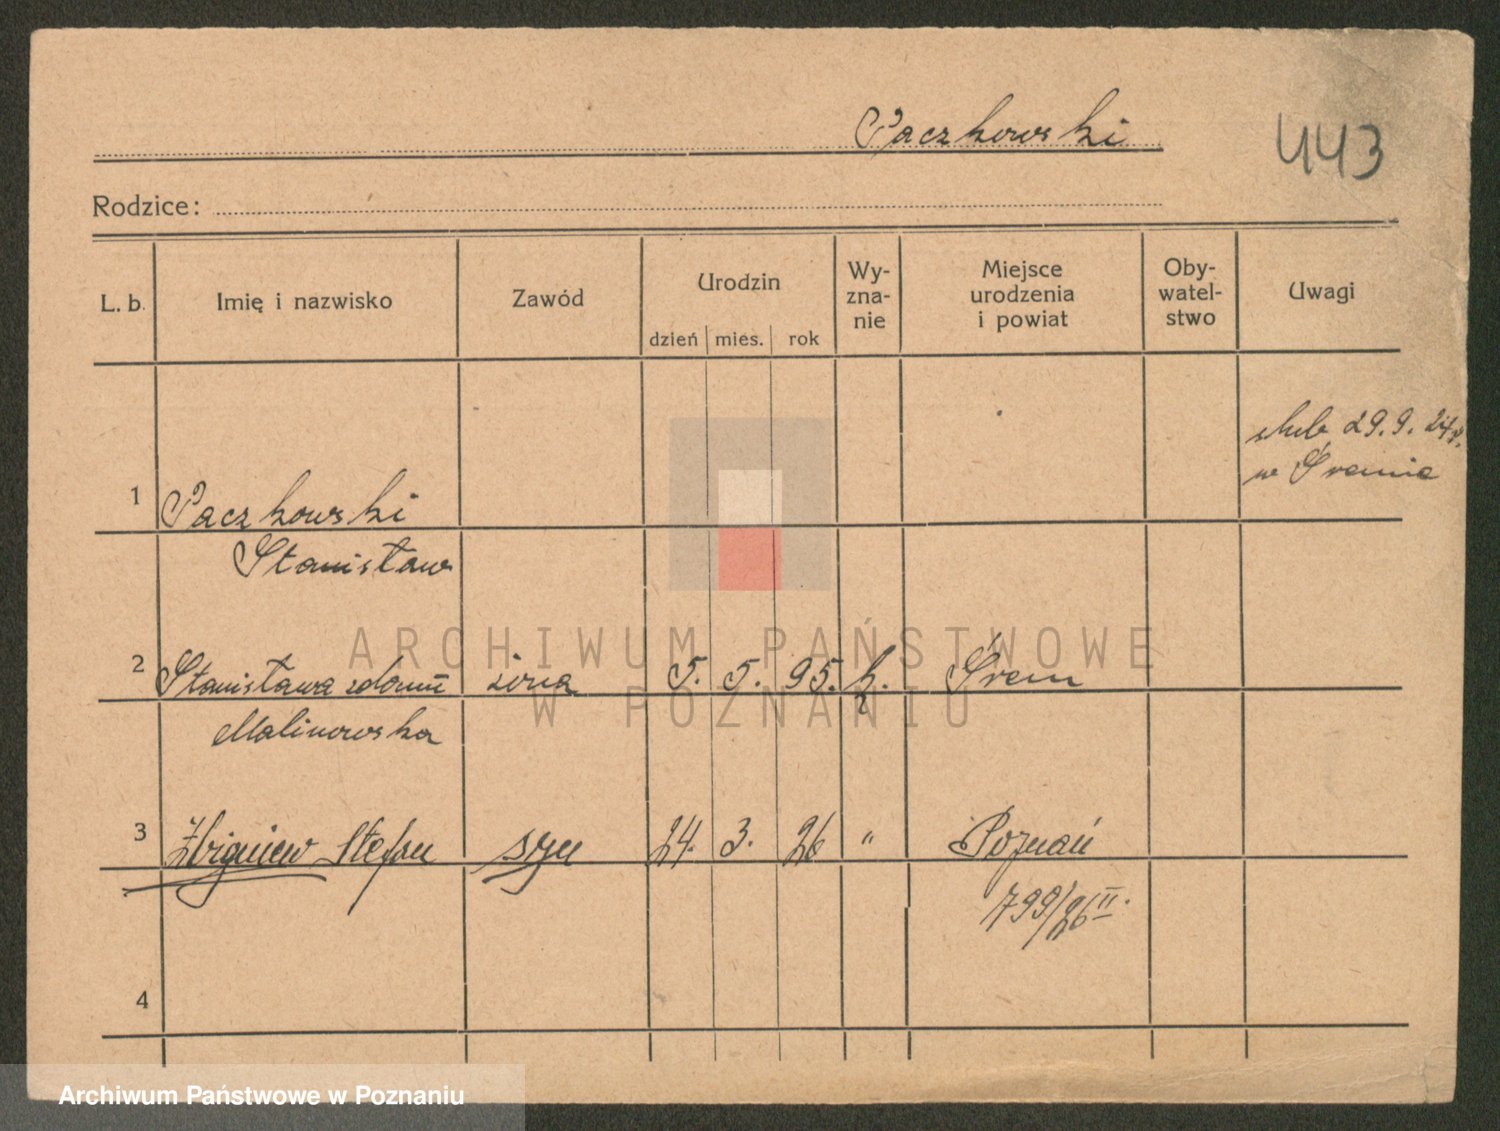 Paczkowski
443
Rodzice:
L. b.
Imię i nazwisko
Zawód
Urodzin
dzień mies. rok
Wy-
zna-
nie
Miejsce
urodzenia
i powiat
Oby-
watel-
stwo
Uwagi
1 Paczkowski
Stanisław
ślub 29.9. 24r.
w Śremie
2 Stanisława z domu żona 5. 5. 95. k. Śrem
Malinowska
3 Zbigniew Stefan syn 24. 3. 26 " Poznań
799/26 II.
4
ARCHIWUM PAŃSTWOWE
W POZNANIU
Archiwum Państwowe w Poznaniu